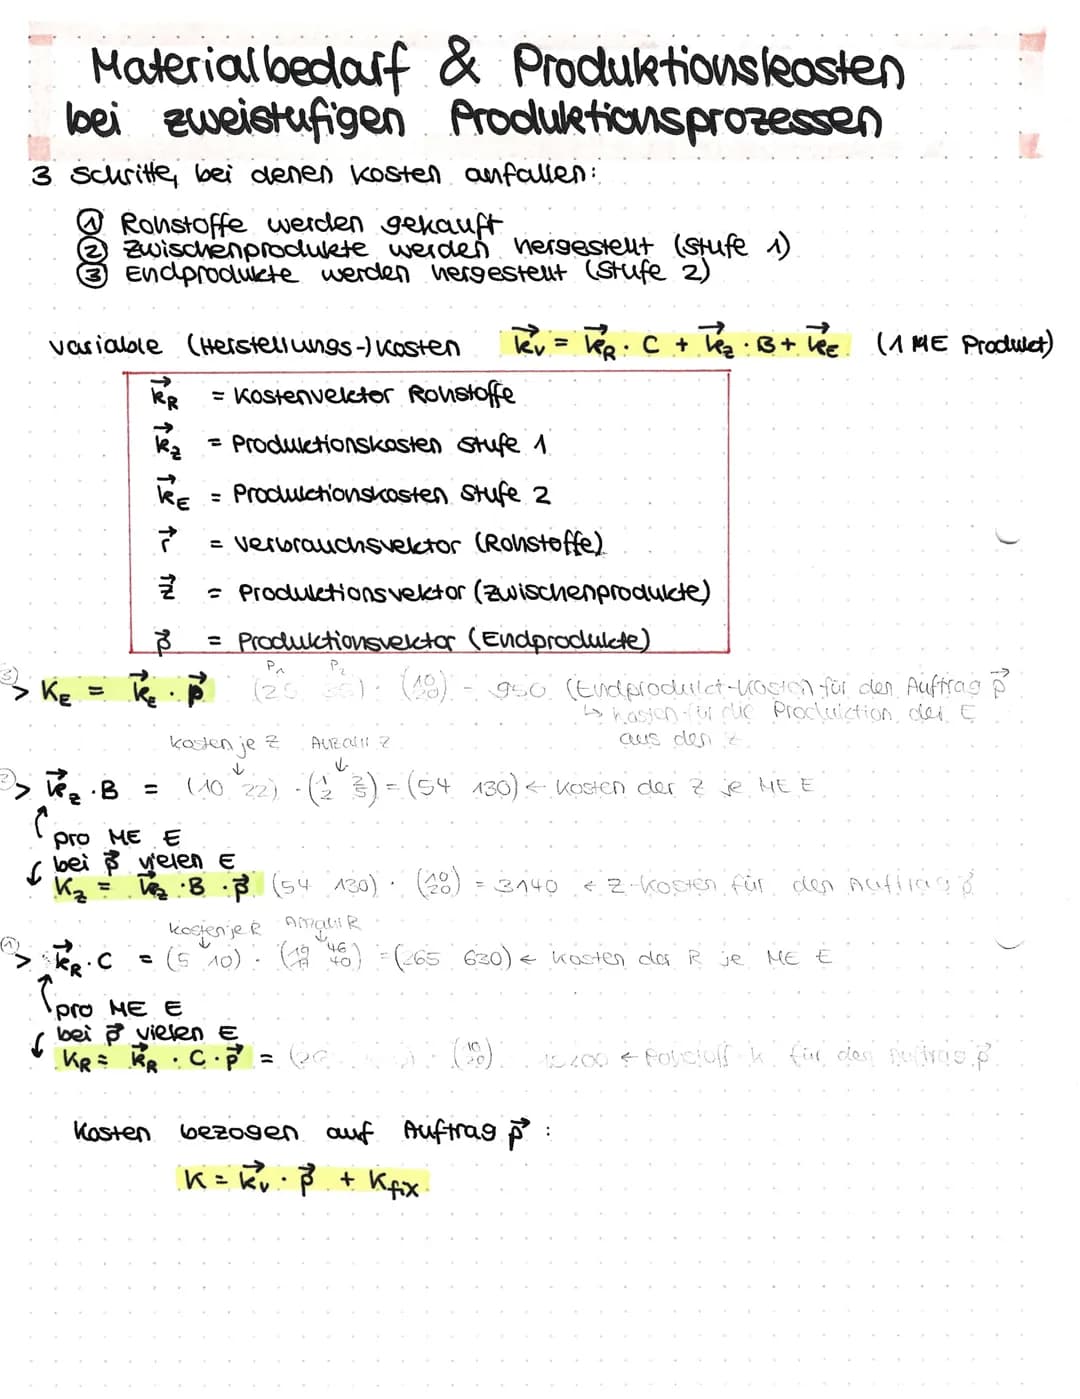 Materialbedarf & Produktionskosten
bei zweistufigen Produktionsprozessen
3 Schritte, bei denen Kosten anfallen:
① Rohstoffe werden gekauft
② Zwischenprodukte werden hergestellt (Stufe 1)
③ Endprodukte werden hergestellt (Stufe 2)
variable (Herstellungs-) Kosten k⃗v = k⃗R · C + k⃗z · B + k⃗E (1 ME Produkt)
k⃗R = Kostenvektor Rohstoffe
k⃗z = Produktionskosten Stufe 1
k⃗E = Produktionskosten Stufe 2
r⃗ = Verbrauchsvektor (Rohstoffe)
z⃗ = Produktionsvektor (Zwischenprodukte)
p⃗ = Produktionsvektor (Endprodukte)
P₁ P₂
③> KE = k⃗E · p⃗ · (10 20) = 950 (Endprodukt-Kosten für den Auftrag p⃗
↳ Kosten für die Produktion der E
aus den Z
Kosten je Z Anzahl Z
②> k⃗z · B = (10 22) · (1 2 2 5) = (54 130) ← Kosten der Z je ME E
pro ME E
bei p⃗ vielen E
Kz = k⃗z · B · p⃗ (54 130) · (10 20) = 3140 ← Z-Kosten für den Auftrag p⃗
Kosten je R Anzahl R
①> k⃗R · C = (5 10) · = (265 630) ← Kosten der R je ME E
pro ME E
bei p⃗ vielen E
KR = k⃗R · C · p⃗ = · (10 20) ← Rohstoff für den Auftrag p⃗
Kosten bezogen auf Auftrag p⃗ :
K = k⃗v · p⃗ + Kfix